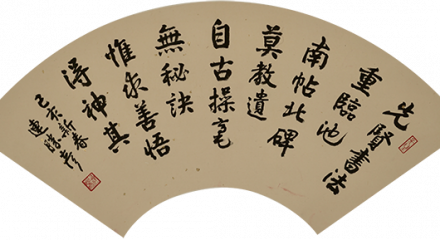 先賢書法
重臨池
南帖北碑
莫教遺
自古操毫
無秘訣
惟求善悟
得神其
己亥新春
連勝彥